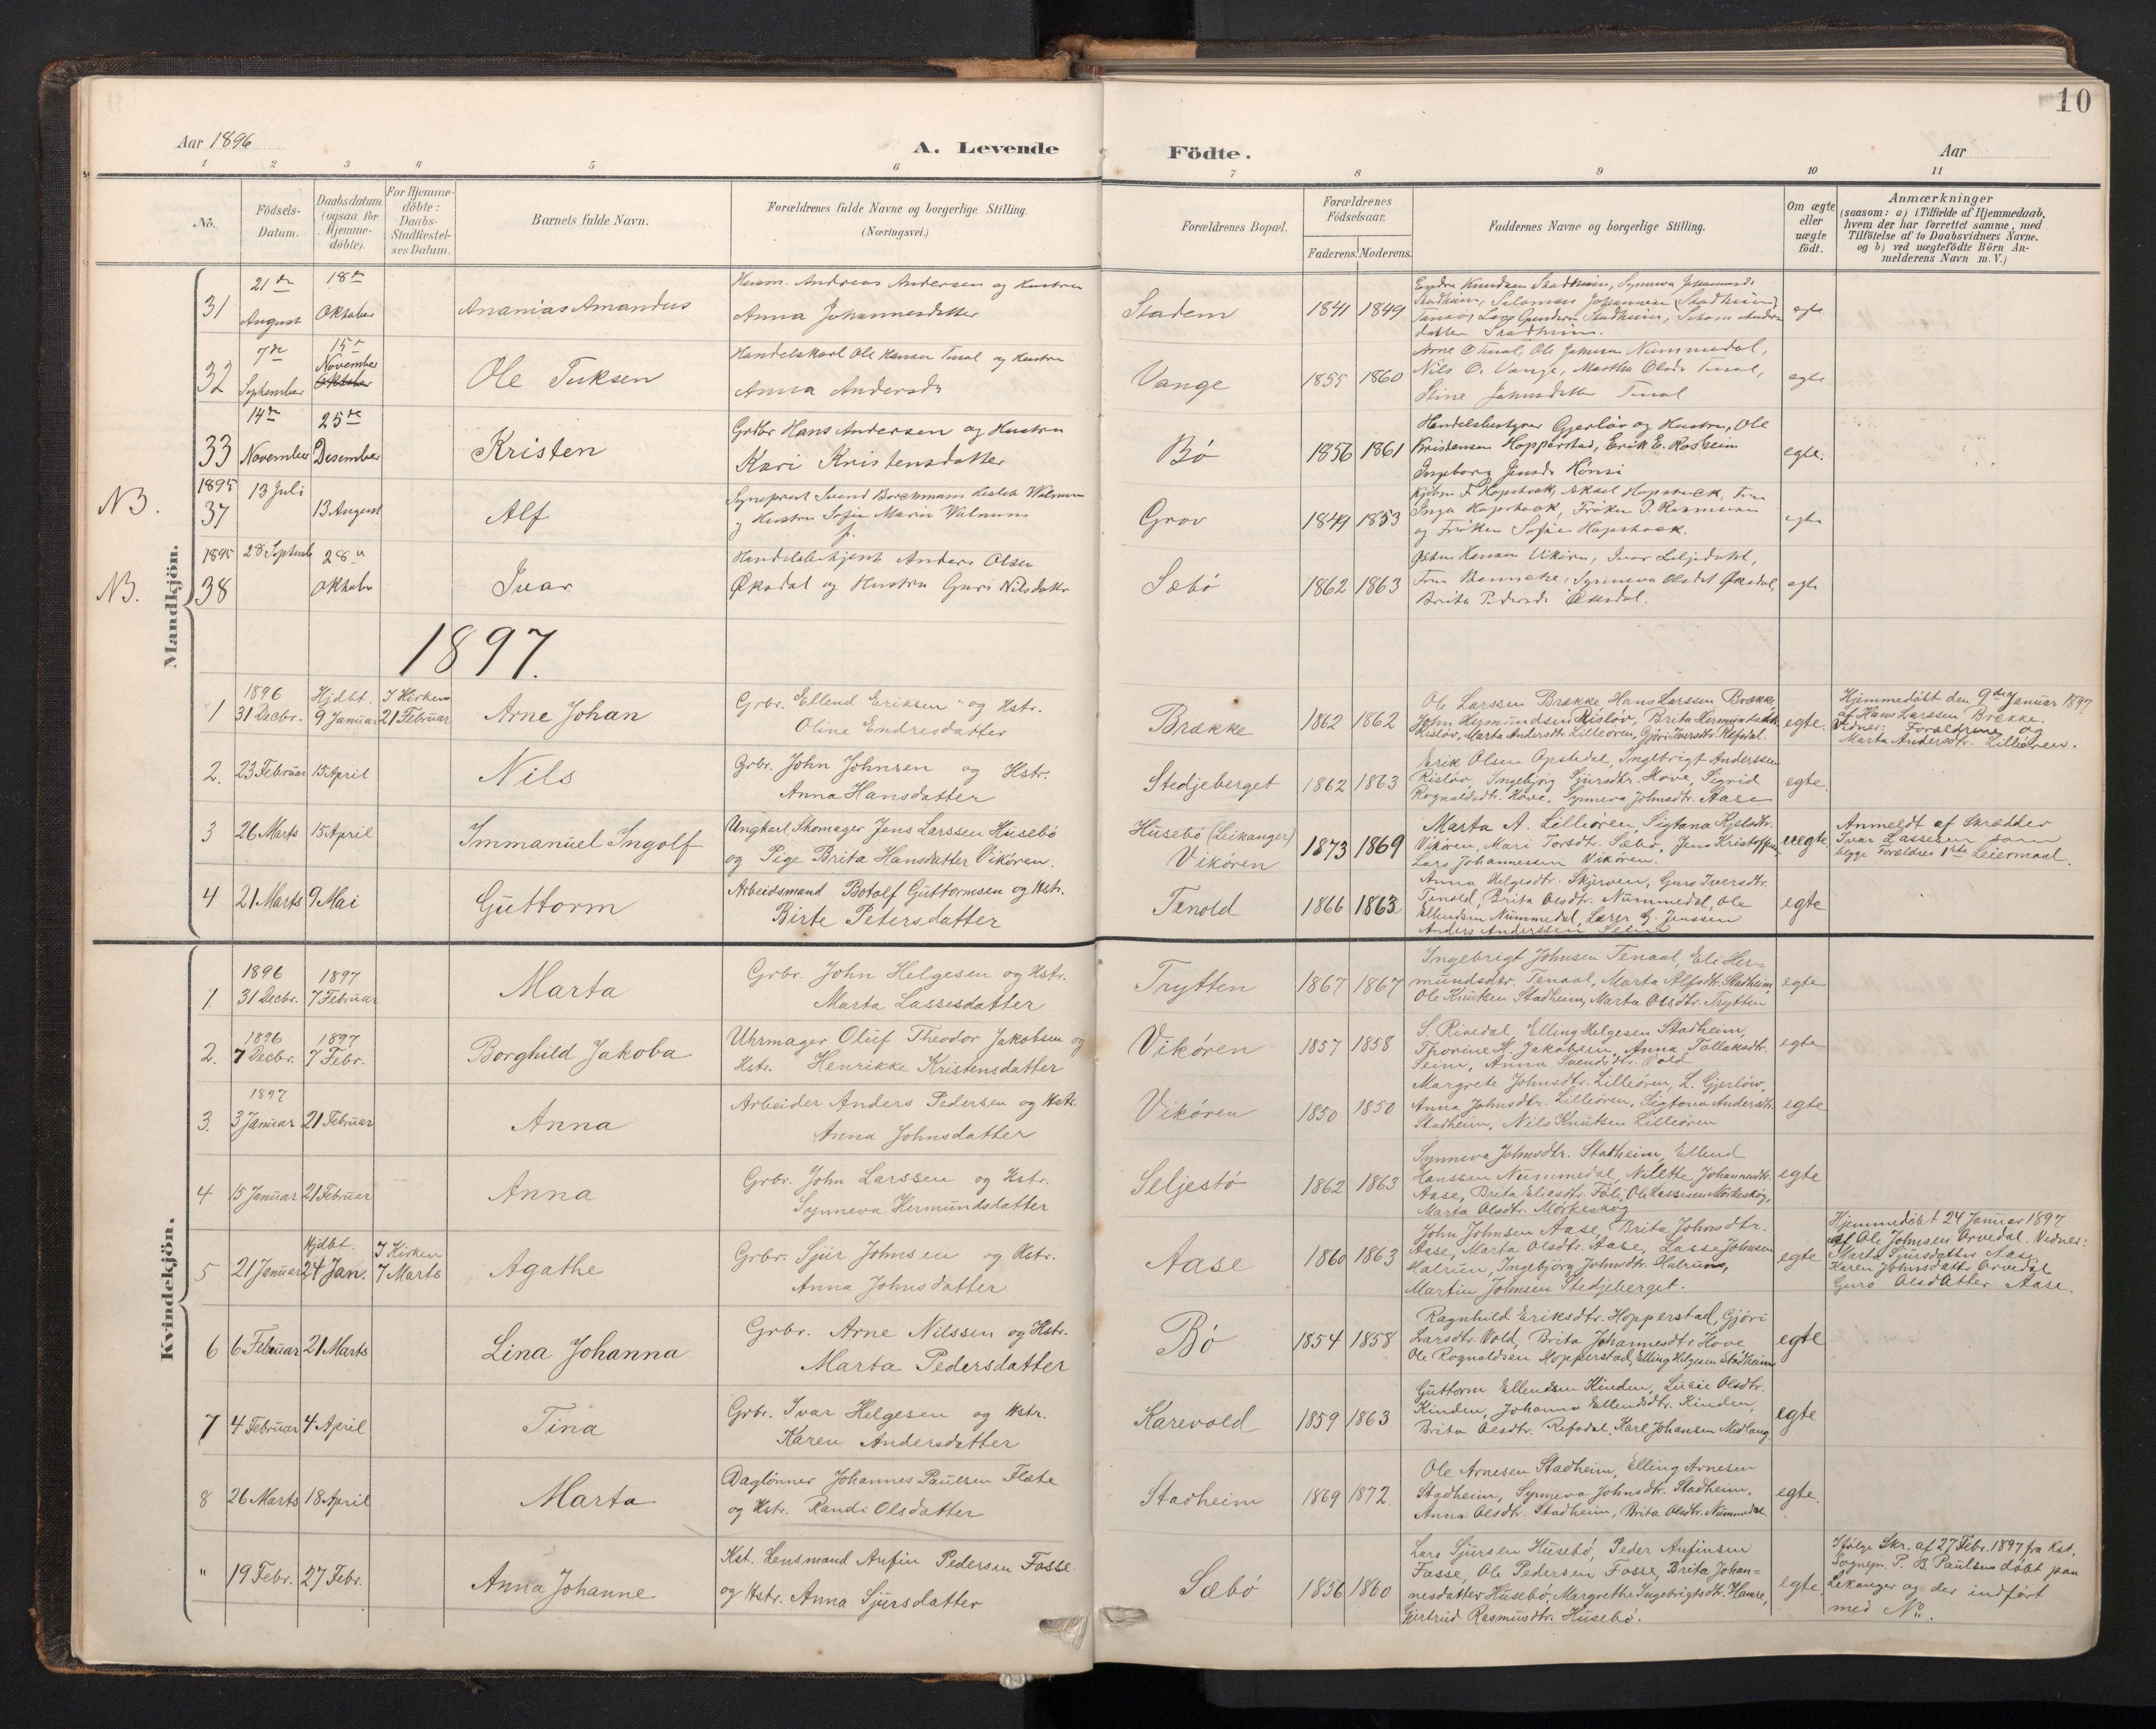 10
Aar 1896
A. Levende
Födte.
Aar
1 2 3 4 5 6 7 8 9 10 11
No.
Födsels-
Datum.
Daabsdatum
(ogsaa for
Hjemme-
döbte).
For Hjemme-
döbte:
Daabs-
Stadfestel-
ses Datum.
Barnets fulde Navn.
Forældrenes fulde Navne og borgerlige Stilling.
(Næringsvei.)
Forældrenes Bopæl.
Forældrenes
Födselsaar.
Faderens. Moderens.
Faddernes Navne og borgerlige Stilling.
Om ægte
eller
uægte
födt.
Anmærkninger
(saasom: a) i Tilfælde af Hjemmedaab,
hvem der har forrettet samme, med
Tilföielse af to Daabsvidners Navne.
og b) ved uægtefödte Börn An-
melderens Navn m. V.)
Mandkjön.
31
21de
August
18de
Oktober
Ananias Amandus
Husm. Andreas Andersen og Hustru
Anna Johannesdatter
Stadem
1841 1849
Endre Knudsen Stadheim, Synneva Johannesdt
Stadheim, Salomon Johannesen Stadheim,
egte
32
7de
September
15de
November
Oktober
Ole Tuksen
Handelskarl Ole Hansen Tenal og Hustru
Anna Andersdr
Vange
1855 1860
Arne O Tenal, Ole Johnsen Nummedal,
Nils O. Vange, Martha Olsdr Tenal,
Stine Johnsdatter Tenal
egte
33
14de
November
25de
Desember
Kristen
Grdbr Hans Andersen og Hustru
Kari Kristensdatter
Bö
1856 1861
Handelsbestyrer Gjerlöv og Hustru, Ole
Kristensen Hopperstad, Erik E. Rosheim
Ingeborg Jensdr Hönsi
egte.
NB.
1895
37
13 Juli
13 August
Alf
Sogneprest Svend Borchmann Hersleb Walnum
og Hustru Sofie Marie Walnum
f.
Grov
1849 1853
Kjöbm F. Hopstock, Aksel Hopstock, Fru
Inga Hopstock, Fröken P. Rasmusen
og Fröken Sofie Hopstock.
egte
NB.
1895
38
28 Septemb
28de
Oktober
Ivar
Handelsbetjent Anders Olsen
Öksdal og Hustru Guri Nilsdatter
Sæbö
1862 1863
Östen Hansen Vikören, Ivar Liljedahl,
Fru Benneche, Synneva Olsdt Öksdal,
Brita Pedersdr Öksdal.
egte
1897.
1
1896
31 Decbr.
Hjdbt.
9 Januar
I Kirken
21 Februar
Arne Johan
Grbr. Ellend Eriksen og Hstr.
Oline Endresdatter
Brække
1862 1862
Ole Larssen Brække, Hans Larssen Brække,
John Hermundsen Rislöv, Brita Hermundsdatter
Rislöv, Marta Andersdtr. Lilleören, Gjöri Iversdtr. Refsdal.
egte.
Hjemmedöbt den 9de Januar 1897
af Hans Larssen Brække.
Vidner: Forældrene og
Marta Andersdtr. Lilleören.
2.
23 Februar
15 April
Nils
Grbr. John Johnsen og Hstr.
Anna Hansdatter
Stedjeberget
1862 1863
Erik Olsen Opstedal, Ingebrigt Anderssen
Rislöv, Ingebjörg Sjursdtr. Hove, Sigrid
Rognaldsdtr. Hove, Synneva Johnsdtr. Aase
egte.
3
26 Marts
15 April
Immanuel Ingolf
Ungkarl, Skomager Jens Larssen Husebö
og Pige Brita Hansdatter Vikören.
Husebö (Leikanger)
Vikören
1873 1869
Marta A. Lilleören, Sigtona Kjelsdtr.
Vikören, Mari Torsdtr. Sæbö, Jens Kristoffersen
Lars Johannessen Vikören.
uegte
Anmeldt af Skrædder
Ivar Lassesen som
begge Forældres 1ste Leiermaal.
4
21 Marts
9 Mai
Guttorm
Arbeidsmand Botolf Guttormsen og Hstr.
Birte Petersdatter
Tenold
1866 1863
Anna Helgesdtr. Skjerven, Guro Iversdtr.
Tenold, Brita Olsdtr. Nummedal, Ole
Ellendsen Nummedal, Lærer G. Jenssen
Anders Anderssen Seim
egte
Kvindekjön.
1
1896
31 Decbr.
1897
7 Februar
Marta
Grbr. John Helgesen og Hstr.
Marta Lassesdatter
Trytten
1867 1867
Ingebrigt Johnsen Tenaal, Eli Her=
mundsdtr. Tenaal, Marta Alfsdtr. Stadheim,
Ole Knutsen Stadheim, Marta Olsdtr. Trytten
egte
2.
1896
7 Decbr.
1897
7 Febr.
Borghild Jakoba
Uhrmager Oluf Theodor Jakobsen og
Hstr. Henrikke Kristensdatter
Vikören
1857 1858
S. Rivedal, Elling Helgesen Stadheim,
Thorine H. Jakobsen, Anna Tollaksdtr.
Seim, Anna Svendsdtr. Vold
egte
3.
1897
3 Januar
21 Februar
Anna
Arbeider Anders Pedersen og Hstr.
Anna Johnsdatter
Vikören
1850 1850
Margrete Johnsdtr. Lilleören, L. Gjerlöw,
Anna Johnsdtr. Lilleören, Sigtona Andersdtr.
Stadheim, Nils Knutsen Lilleören
egte
4
15 Januar
21 Februar
Anna
Grbr. John Larssen og Hstr.
Synneva Hermundsdatter
Seljestö
1862 1863
Synneva Johnsdtr. Stadheim, Ellend
Hanssen Nummedal, Nilette Johannesdtr.
Aase, Brita Eliasdtr. Föli, Ole Lassesen Mörkeskog,
Marta Olsdtr. Mörkeskog
egte
5
21 Januar
Hjdbt.
24 Jan.
I Kirken
7 Marts
Agathe
Grbr. Sjur Johnsen og Hstr.
Anna Johnsdatter
Aase
1860 1863
John Johnsen Aase, Brita Johnsdtr.
Aase, Marta Olsdtr. Aase, Lasse Johnsen
Halrun, Ingebjörg Johnsdtr. Halrun,
Martin Johnsen Stedjeberget.
egte
Hjemmedöbt 24 Januar 1897
af Ole Johnsen Arvedal. Vidner:
Marta Sjursdatter Aase
Karen Johnsdatter Arvedal
Guro Olsdatter Aase.
6
6 Februar
21 Marts
Lina Johanna
Grbr. Arne Nilssen og Hstr.
Marta Pedersdatter
Bö
1854 1858
Ragnhild Eriksdtr. Hopperstad, Gjöri
Larsdtr. Vold, Brita Johannesdtr. Hove
Ole Rognaldsen Hopperstad, Elling Helgesen Stadheim
egte
7
4 Februar
4 April
Tina
Grbr. Ivar Helgesen og Hstr.
Karen Andersdatter
Karevold
1859 1863
Guttorm Ellendsen Hinden, Lucie Olsdtr.
Kinden, Johanna Ellendsdtr. Kinden,
Brita Olsdtr. Refsdal, Karl Johansen Midlang.
egte
8
26 Marts
18 April
Marta
Daglönner Johannes Paulsen Flæte
og Hstr. Randi Olsdatter
Stadheim
1869 1872.
Ole Arnesen Stadheim, Elling Arnesen
Stadheim, Synneva Johnsdtr. Stadheim.
Anna Olsdtr. Stadheim, Brita Olsdtr. Nummedal
egte.
"
19 Febr.
27 Febr.
Anna Johanne
Kst. Lensmand Anfin Pedersen Fosse
og Hstr. Anna Sjursdatter
Sæbö
1856 1860
Lars Sjursen Husebö, Peder Anfinsen
Fosse, Ole Pedersen Fosse, Brita Johan=
nesdatter Husebö, Margrethe Ingebrigtsdtr. Hamre,
Gjertrud Rasmusdtr. Husebö.
egte.
Ifölge Skr. af 27 Febr. 1897 fra Kst.
Sognepr. P. B. Paulsen döbt paa
Lekanger og der indfört
med No.